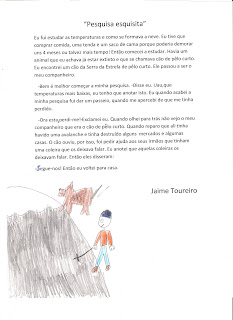 "Pesquisa esquisita"
Eu fui estudar as temperaturas e como se formava a neve. Eu tive que
comprar comida, uma tenda e um saco de cama porque poderia demorar
uns 4 meses ou talvez mais tempo! Então comecei a estudar. Havia um
animal que eu achava já estar extinto e que se chamava cão de pêlo curto.
Eu encontrei um cão da Serra da Estrela de pêlo curto. Ele passou a ser o
meu companheiro.
-Bem é melhor começar a minha pesquisa. -Disse eu. Uau,que
temperaturas mais baixas, eu tenho que anotar isto. Eu quando acabei a
minha pesquisa fui dar um passeio, quando me apercebi de que me tinha
perdido.
-Ora esta,perdi-me!-Exclamei eu. Quando olhei para trás não vejo o meu
companheiro que era o cão de pêlo curto. Quando reparo que ali tinha
havido uma avalanche e tinha destruído alguns mercados e algumas
casas. O cão ouviu, por isso, foi pedir ajuda aos seus irmãos que tinham
uma coleira que os deixava falar. Eu anotei que aquelas coleiras os
deixavam falar. Então eles disseram:
-Segue-nos! Então eu voltei para casa.
Jaime Toureiro